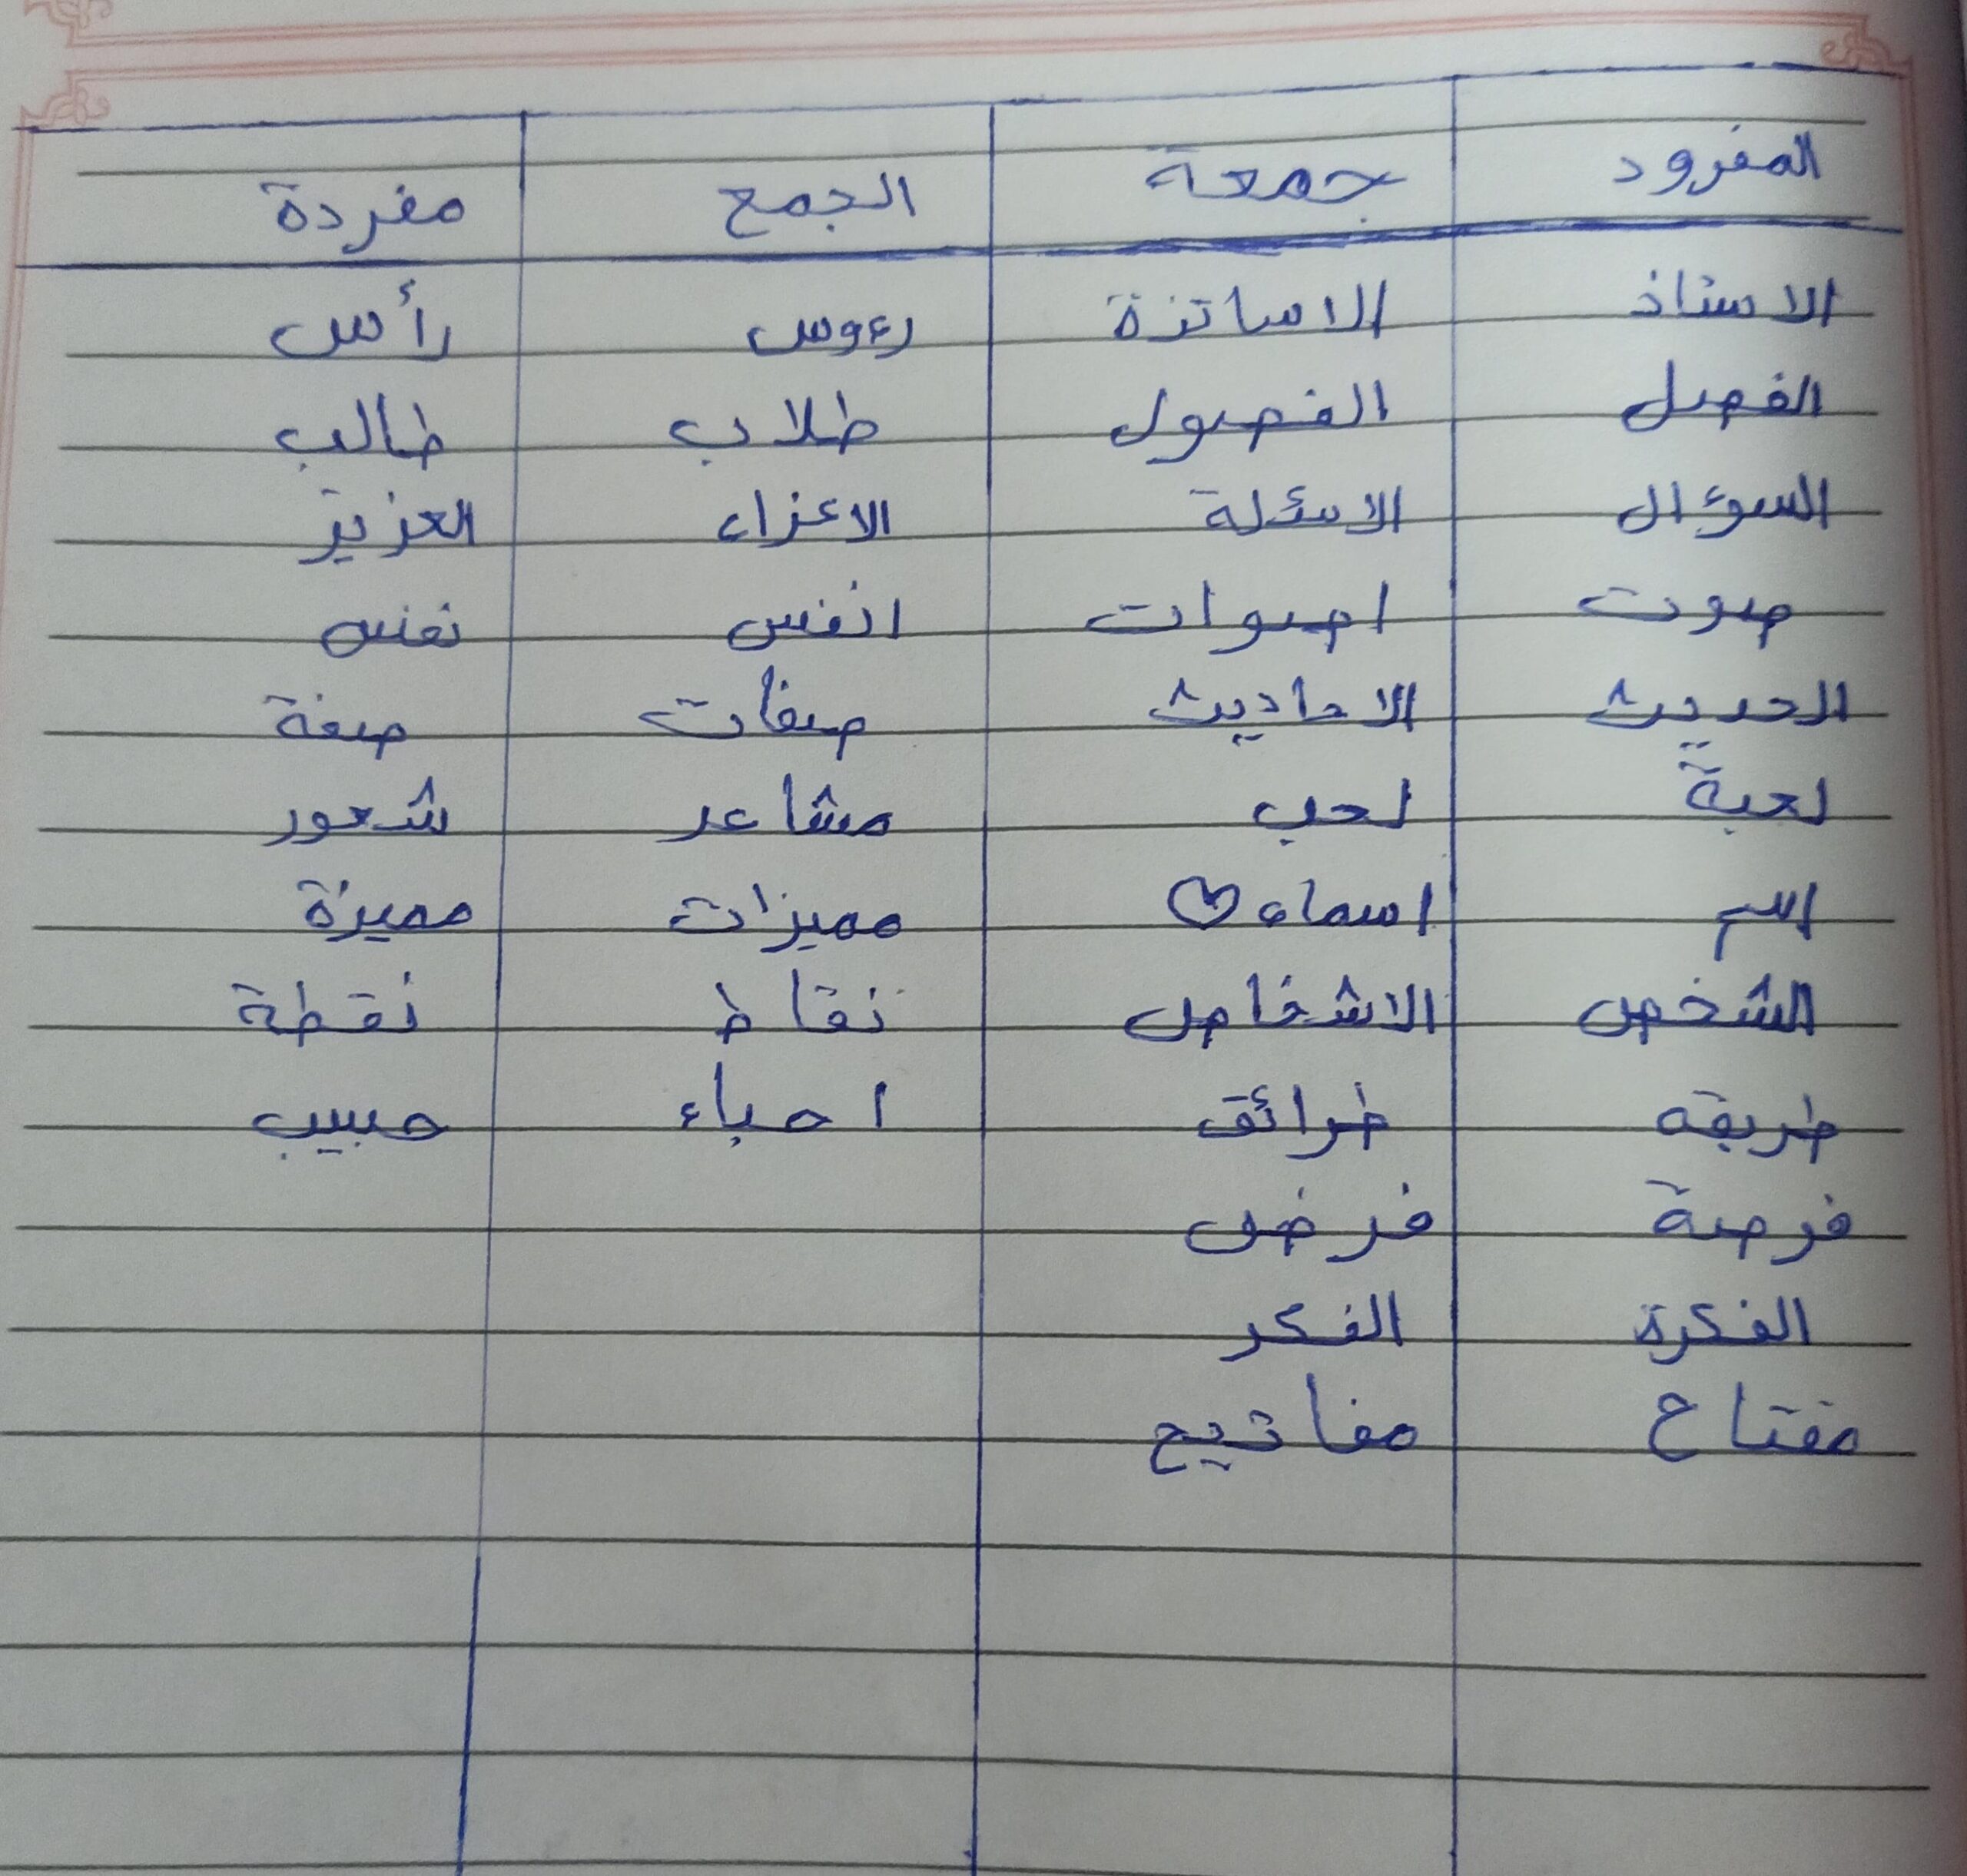 المفرود جمعة الجمع مفردة
الاستاذ الاساتزة رءوس رأس
الفصل الفصول طلاب طالب
السوءال الاسئلة الاعزاء العزيز
صوت اصوات انفس نفس
الحديث الاحاديث صفات صفة
لعبة لعب مشاعر شعور
اسم اسماء مميزات مميزة
الشخص الاشخاص نقاط نقطة
طريقه طرائق احباء حبيب
فرصة فرض
الفكرة الفكر
مفتاح مفاتيح